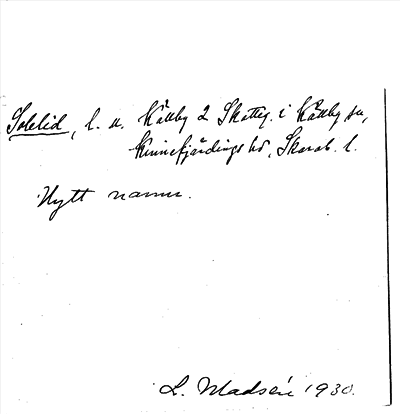 Solelid, l. u. Källby 2 Skatteg. i Källby sn,
Kinnefjärdings hd, Skarab. l.
Nytt namn.
L. Madsén 1930.